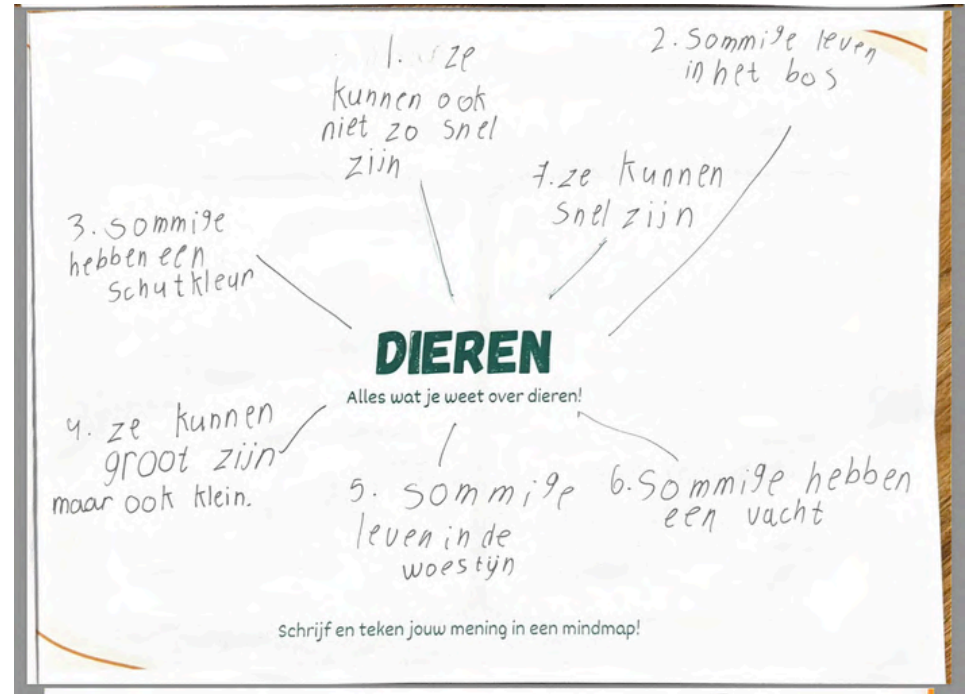 1. ze
kunnen ook
niet zo snel
zijn
2. Sommige leven
in het bos
7. ze kunnen
snel zijn
3. sommige
hebben een
schutkleur
DIEREN
Alles wat je weet over dieren!
4. ze kunnen
groot zijn
maar ook klein.
5. sommige
leven in de
woestijn
6. Sommige hebben
een vacht
Schrijf en teken jouw mening in een mindmap!